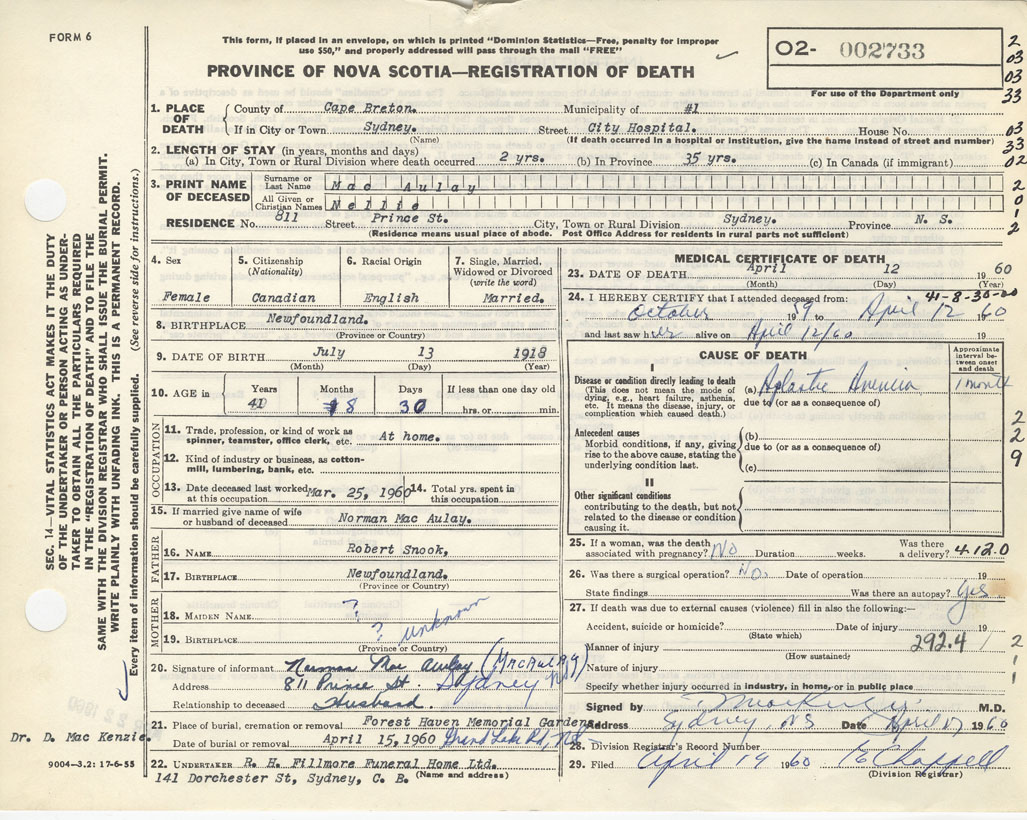 FORM 6
This form, if placed in an envelope, on which is printed "Dominion Statistics—Free, penalty for improper
use $50," and properly addressed will pass through the mail "FREE"
PROVINCE OF NOVA SCOTIA—REGISTRATION OF DEATH
02- 002733
For use of the Department only
2
03
03
33
03
33
02
2
0
1
2
1. PLACE OF DEATH County of Cape Breton. Municipality of #1
If in City or Town Sydney. Street City Hospital. House No.
(Name) (If death occurred in a hospital or institution, give the name instead of street and number)
2. LENGTH OF STAY (in years, months and days)
(a) In City, Town or Rural Division where death occurred 2 yrs. (b) In Province 35 yrs. (c) In Canada (if immigrant)
3. PRINT NAME OF DECEASED
Surname or Last Name Mac Aulay
All Given or Christian Names Nellie
RESIDENCE No. 811 Street Prince St. City, Town or Rural Division Sydney. Province N. S.
(Residence means usual place of abode. Post Office Address for residents in rural parts not sufficient)
4. Sex
Female
5. Citizenship
(Nationality)
Canadian
6. Racial Origin
English
7. Single, Married,
Widowed or Divorced
(write the word)
Married.
8. BIRTHPLACE Newfoundland.
(Province or Country)
9. DATE OF BIRTH July 13 1918
(Month) (Day) (Year)
10. AGE in Years Months Days If less than one day old
41 8 30 hrs. or min.
OCCUPATION
11. Trade, profession, or kind of work as
spinner, teamster, office clerk, etc. At home.
12. Kind of industry or business, as cotton-
mill, lumbering, bank, etc.
13. Date deceased last worked
at this occupation Mar. 25, 1960
14. Total yrs. spent in
this occupation
15. If married give name of wife
or husband of deceased Norman Mac Aulay.
FATHER
16. NAME Robert Snook,
17. BIRTHPLACE Newfoundland.
(Province or Country)
MOTHER
18. MAIDEN NAME ?
19. BIRTHPLACE ? unknown
(Province or Country)
20. Signature of informant Norman Mac Aulay (MacAulay)
Address 811 Prince St Sydney NS
Relationship to deceased Husband.
21. Place of burial, cremation or removal Forest Haven Memorial Gardens
Date of burial or removal April 15, 1960 Grand Lake Rd, NS
22. UNDERTAKER R. H. Fillmore Funeral Home Ltd.
141 Dorchester St, Sydney, C. B. (Name and address)
MEDICAL CERTIFICATE OF DEATH
23. DATE OF DEATH April 12 1960
(Month) (Day) (Year)
41-8-30-00
24. I HEREBY CERTIFY that I attended deceased from:
October 1959 to April 12 1960
and last saw her alive on April 12/60
CAUSE OF DEATH
Approximate
interval be-
tween onset
and death
I
Disease or condition directly leading to death
(This does not mean the mode of
dying, e.g., heart failure, asthenia,
etc. It means the disease, injury, or
complication which caused death.)
(a) Aplastic Anemia 1 month
due to (or as a consequence of)
Antecedent causes
Morbid conditions, if any, giving
rise to the above cause, stating the
underlying condition last.
(b)
due to (or as a consequence of)
(c)
II
Other significant conditions
contributing to the death, but not
related to the disease or condition
causing it.
2
2
9
25. If a woman, was the death
associated with pregnancy? No Duration weeks. Was there
a delivery? 412.0
26. Was there a surgical operation? No. Date of operation 19
State findings Was there an autopsy? Yes
27. If death was due to external causes (violence) fill in also the following:—
Accident, suicide or homicide? Date of injury 19
(State which)
Manner of injury 292.4 1
(How sustained)
Nature of injury
Specify whether injury occurred in industry, in home, or in public place
2
1
1
Signed by M.D.
Address Sydney, NS Date April 17 1960
28. Division Registrar's Record Number
29. Filed April 19 1960 Chappell
(Division Registrar)
SEC. 14—VITAL STATISTICS ACT MAKES IT THE DUTY
OF THE UNDERTAKER OR PERSON ACTING AS UNDER-
TAKER TO OBTAIN ALL THE PARTICULARS REQUIRED
IN THE "REGISTRATION OF DEATH" AND TO FILE THE
SAME WITH THE DIVISION REGISTRAR WHO SHALL ISSUE THE BURIAL PERMIT.
WRITE PLAINLY WITH UNFADING INK. THIS IS A PERMANENT RECORD.
Every item of information should be carefully supplied. (See reverse side for instructions.)
Dr. D. Mac Kenzie.
9004-3.2: 17-6-55